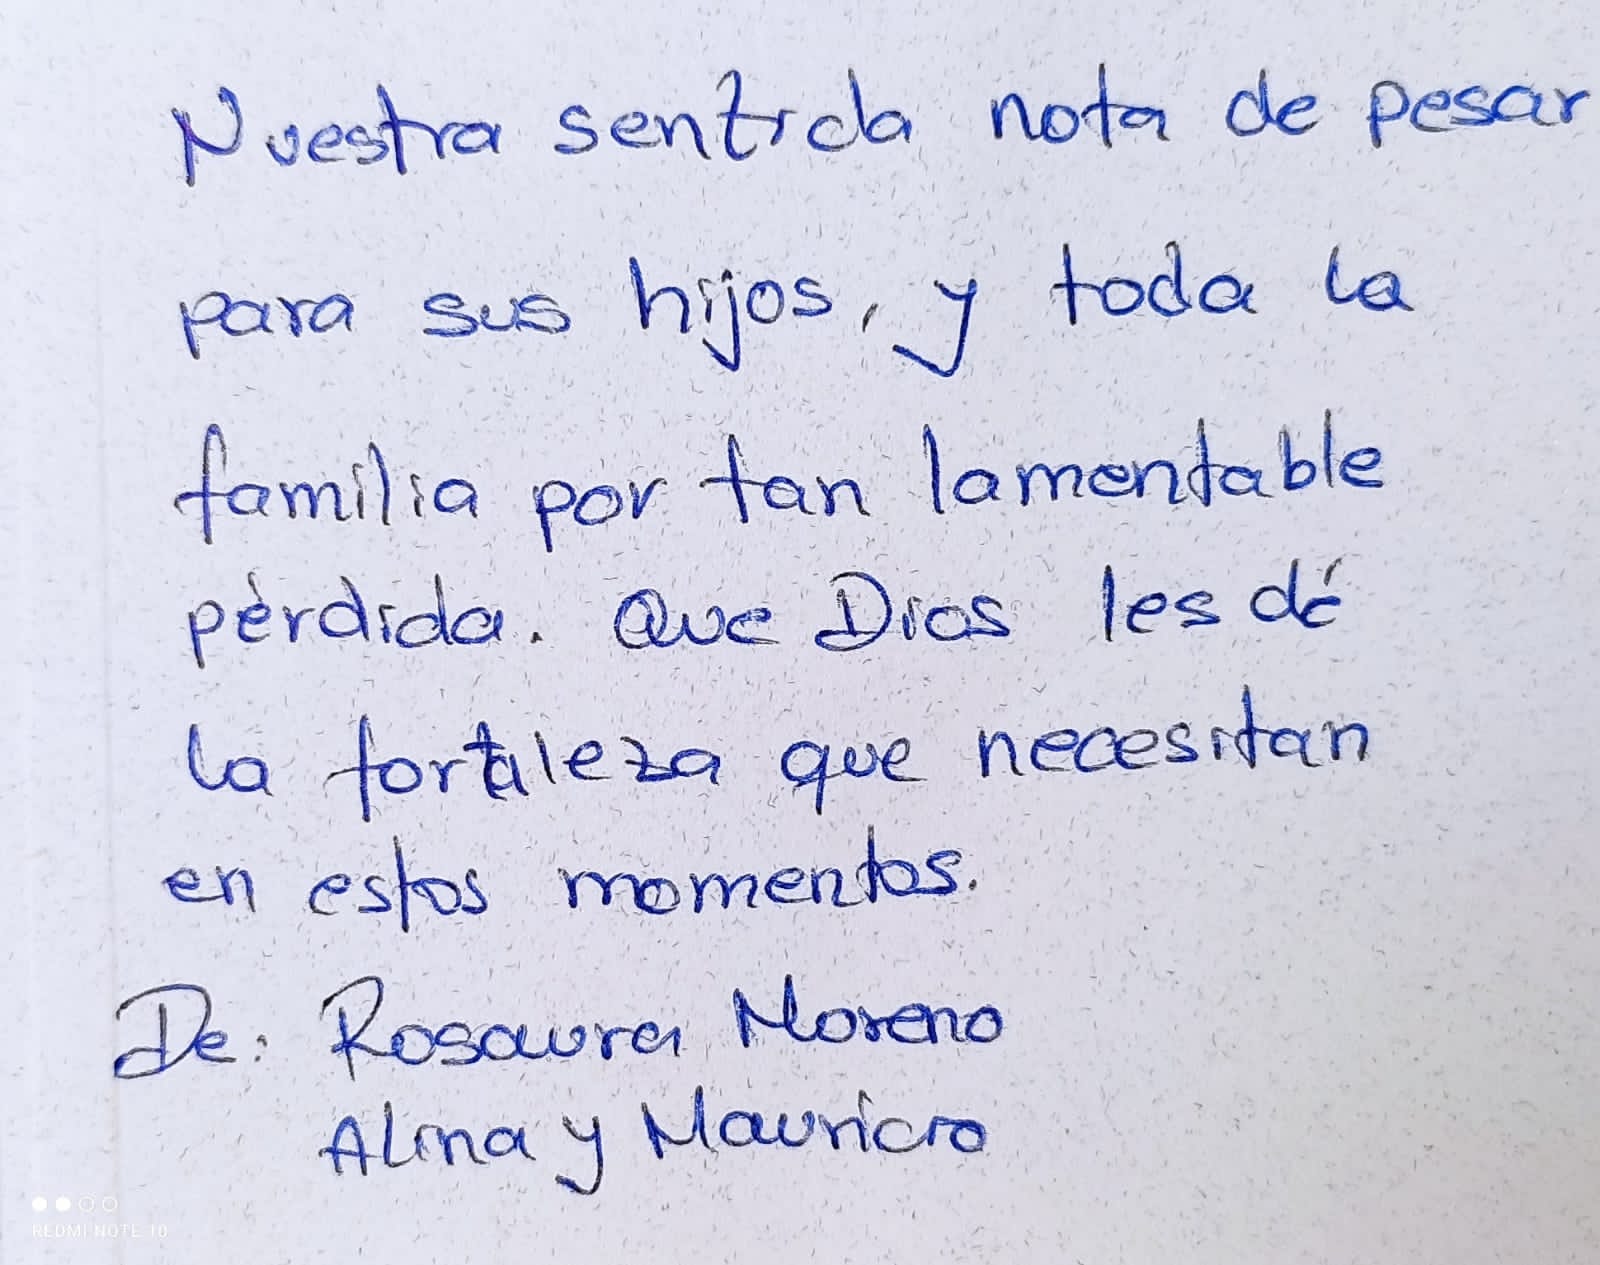 Nuestra sentida nota de pesar
para sus hijos, y toda la
familia por tan lamentable
pérdida. Que Dios les dé
la fortaleza que necesitan
en estos momentos.
De: Rosaura Moreno
Alina y Mauricio
REDMI NOTE 10